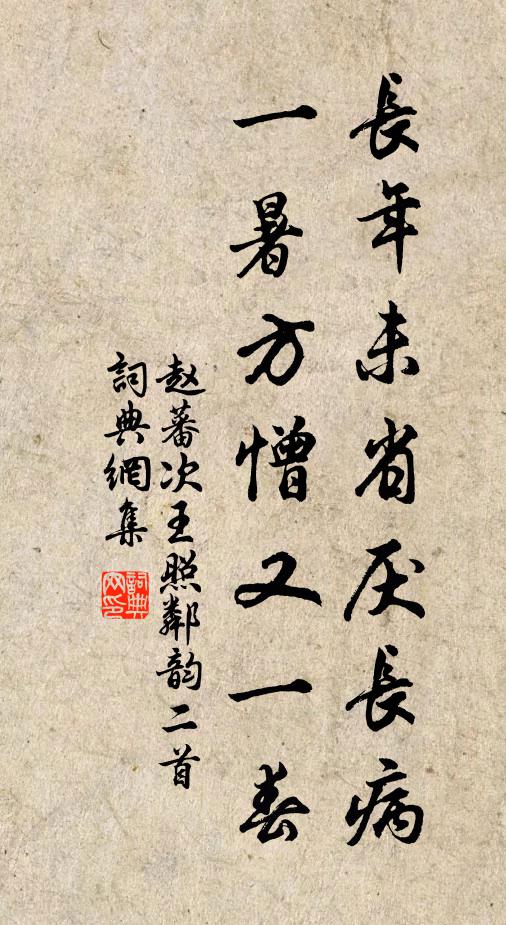 長年未省厌長病
一暑方憎又一春
赵蕃次王照鄰韵二首
詞典網集
詞典网印